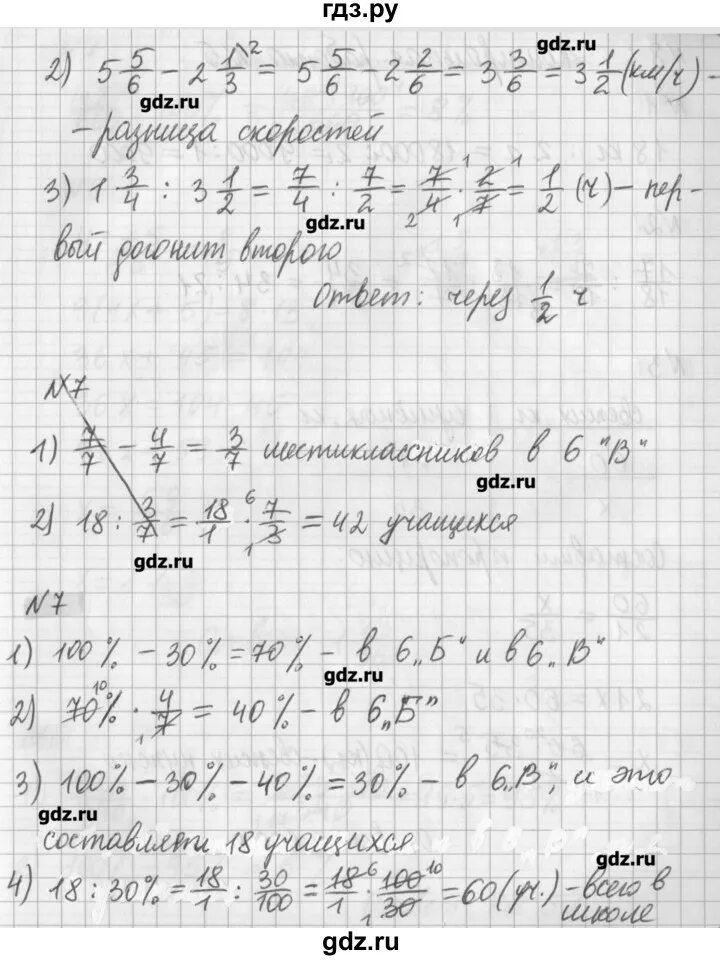 гдз.ру
gdz.ru
2) 5 5/6 − 2 1/3 \2 = 5 5/6 − 2 2/6 = 3 3/6 = 3 1/2 (км/ч) −
gdz.ru
− разница скоростей
3) 1 3/4 : 3 1/2 = 7/4 : 7/2 = 7/4 · 2/7 = 1/2 (ч) − пер-
gdz.ru
вый догонит второго
Ответ: через 1/2 ч
N7
1) 7/7 − 4/7 = 3/7 шестиклассников в 6 "В"
gdz.ru
2) 18 : 3/7 = 18/1 · 7/3 = 42 учащихся
gdz.ru
N7
1) 100% − 30% = 70% − в 6 „Б" и в 6 „В"
gdz.ru
2) 70% · 4/7 = 40% − в 6 „Б"
3) 100% − 30% − 40% = 30% − в 6 „В", и это
gdz.ru
составляет 18 учащихся
gdz.ru
4) 18 : 30% = 18/1 : 30/100 = 18/1 · 100/30 = 60 (уч.) − всего в
школе
gdz.ru